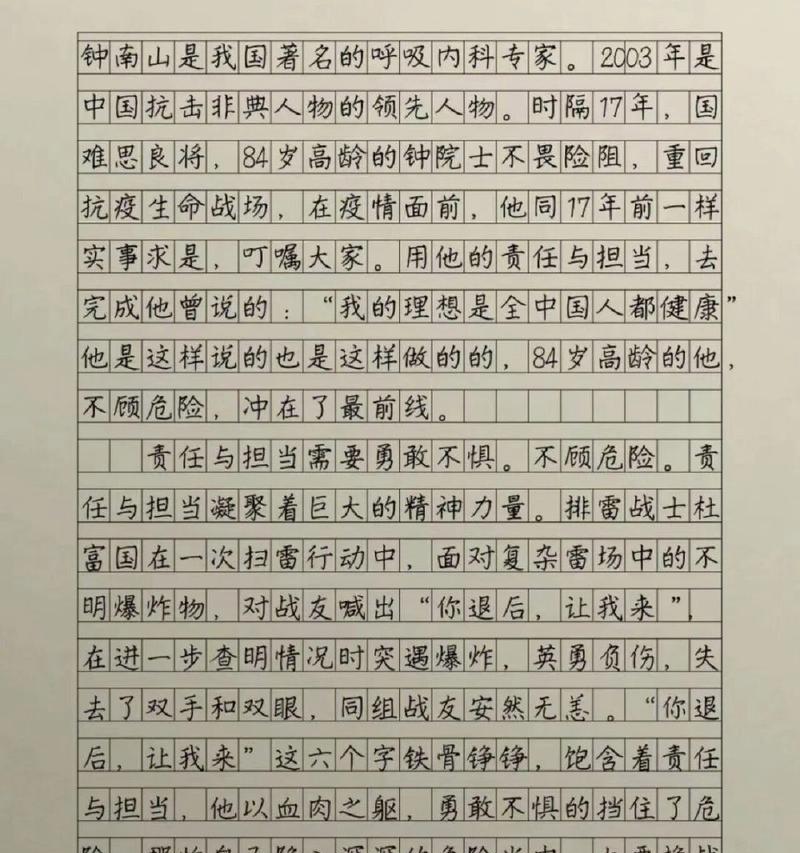 钟南山是我国著名的呼吸内科专家。2003年是
中国抗击非典人物的领先人物。时隔17年，国
难思良将，84岁高龄的钟院士不畏险阻，重回
抗疫生命战场，在疫情面前，他同17年前一样
实事求是，叮嘱大家。用他的责任与担当，去
完成他曾说的：“我的理想是全中国人都健康”
他是这样说的也是这样做的的，84岁高龄的他，
不顾危险，冲在了最前线。
责任与担当需要勇敢不惧。不顾危险。责
任与担当凝聚着巨大的精神力量。排雷战士杜
富国在一次扫雷行动中，面对复杂雷场中的不
明爆炸物，对战友喊出“你退后，让我来”，
在进一步查明情况时突遇爆炸，英勇负伤，失
去了双手和双眼，同组战友安然无恙。“你退
后，让我来”这六个字铁骨铮铮，饱含着责任
与担当，他以血肉之躯，勇敢不惧的挡住了危